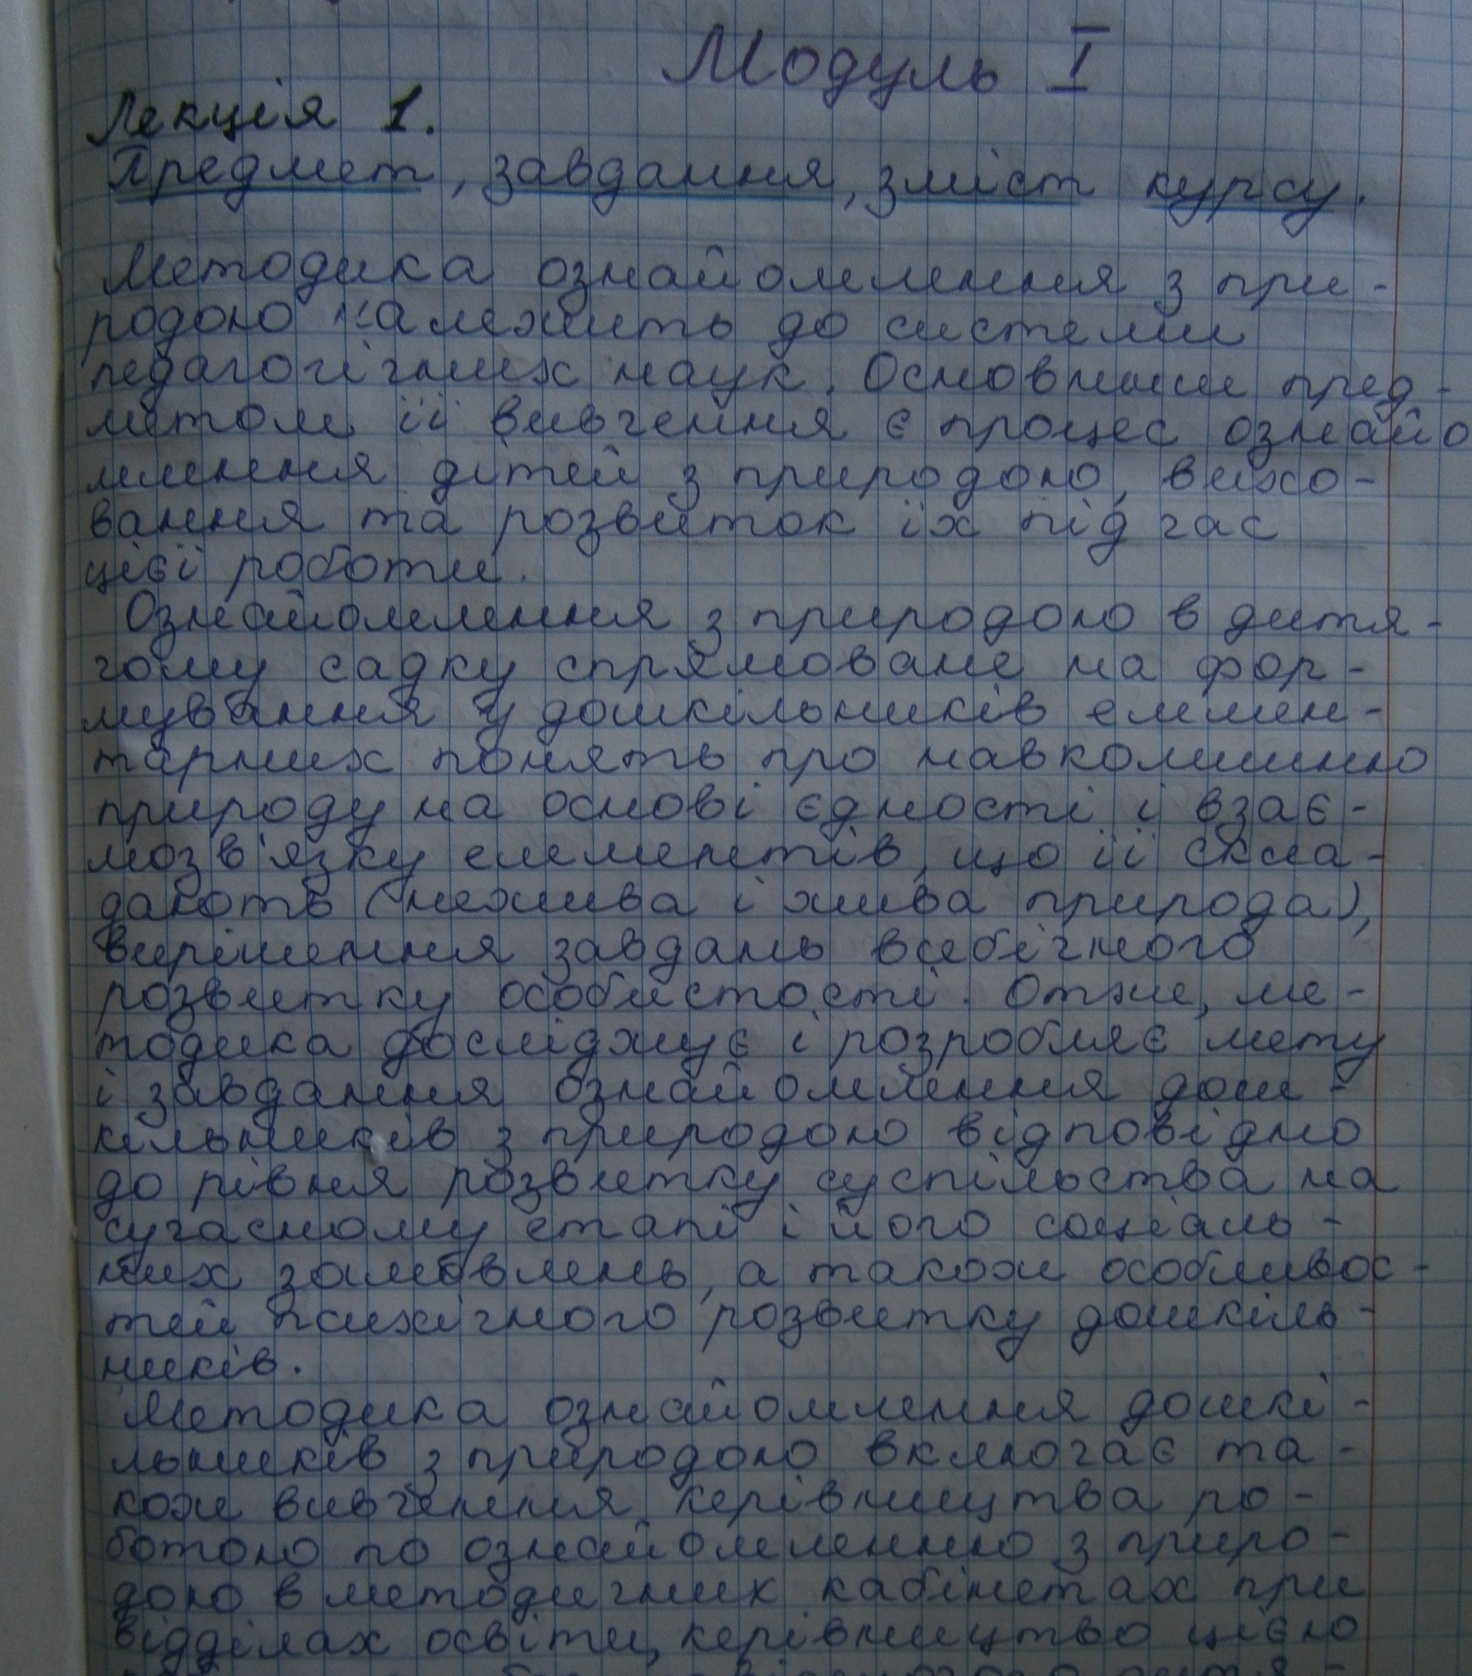 Модуль I
Лекція 1.
Предмет, завдання, зміст курсу.
Методика ознайомлення з при-
родою належить до системи
педагогічних наук. Основним пред-
метом її вивчення є процес ознайо
млення дітей з природою, вихо-
вання та розвиток їх під час
цієї роботи.
Ознайомлення з природою в дитя-
чому садку спрямоване на фор-
мування у дошкільників елемен-
тарних понять про навколишню
природу на основі єдності і взає-
мозв'язку елементів, що її скла-
дають (нежива і жива природа),
вирішення завдань всебічного
розвитку особистості. Отже, ме-
тодика досліджує і розробляє мету
і завдання ознайомлення дош-
кільників з природою відповідно
до рівня розвитку суспільства на
сучасному етапі і його соціаль-
них замовлень, а також особливос-
тей психічного розвитку дошкіль-
ників.
Методика ознайомлення дошкі-
льників з природою включає та-
кож вивчення керівництва ро-
ботою по ознайомленню з приро-
дою в методичних кабінетах при
відділах освіти, керівництво цією